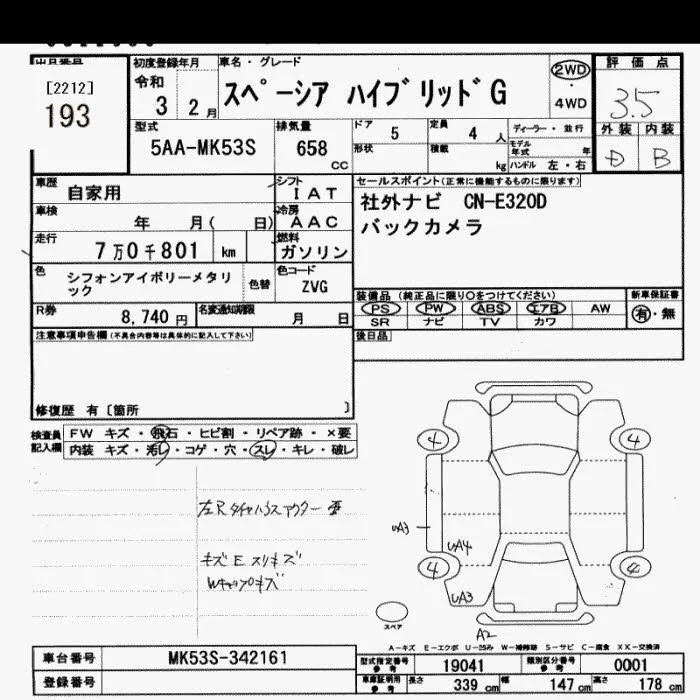 出品番号
[2212]
193
初度登録年月
令和
3 2月
車名・グレード
スペーシア ハイブリッドG
2WD
・
4WD
評価点
3.5
外装 内装
D B
型式
5AA-MK53S
排気量
658
cc
ドア
5
定員
4 人
形状
積載
kg
ディーラー・並行
モデル
年式 年
ハンドル 左・右
車歴
自家用
シフト
IAT
車検
年 月( 日)
冷房
AAC
走行
7万0千801 km
燃料
ガソリン
色
シフォンアイボリーメタリ
ック
色替
色コード
ZVG
R券
8,740 円
名変通知期限
月 日
セールスポイント(正常に機能するものに限ります)
社外ナビ CN-E320D
バックカメラ
装備品 (純正品に限り〇をつけてください)
PS PW ABS エアB AW
SR ナビ TV カワ
新車保証書
有・無
後日品
注意事項申告欄(不具合内容等は具体的に記入して下さい)
修復歴 有〔箇所 〕
検査員
記入欄
FW キズ・飛石・ヒビ割・リペア跡・×要
内装 キズ・汚レ・コゲ・穴・スレ・キレ・破レ
左Rタイヤハウスアウター
キズ E スリキズ
Wキャップキズ
4
4
UA3
UA4
4
4
UA3
A2
スペア
A-キズ E-エクボ U-凹み W-補修跡 S-サビ C-腐食 XX-交換済
車台番号
MK53S-342161
登録番号
型式指定番号
参考
19041
類別区分番号
参考
0001
車庫証明用
参考
長さ 339 cm 幅 147 cm 高さ 178 cm